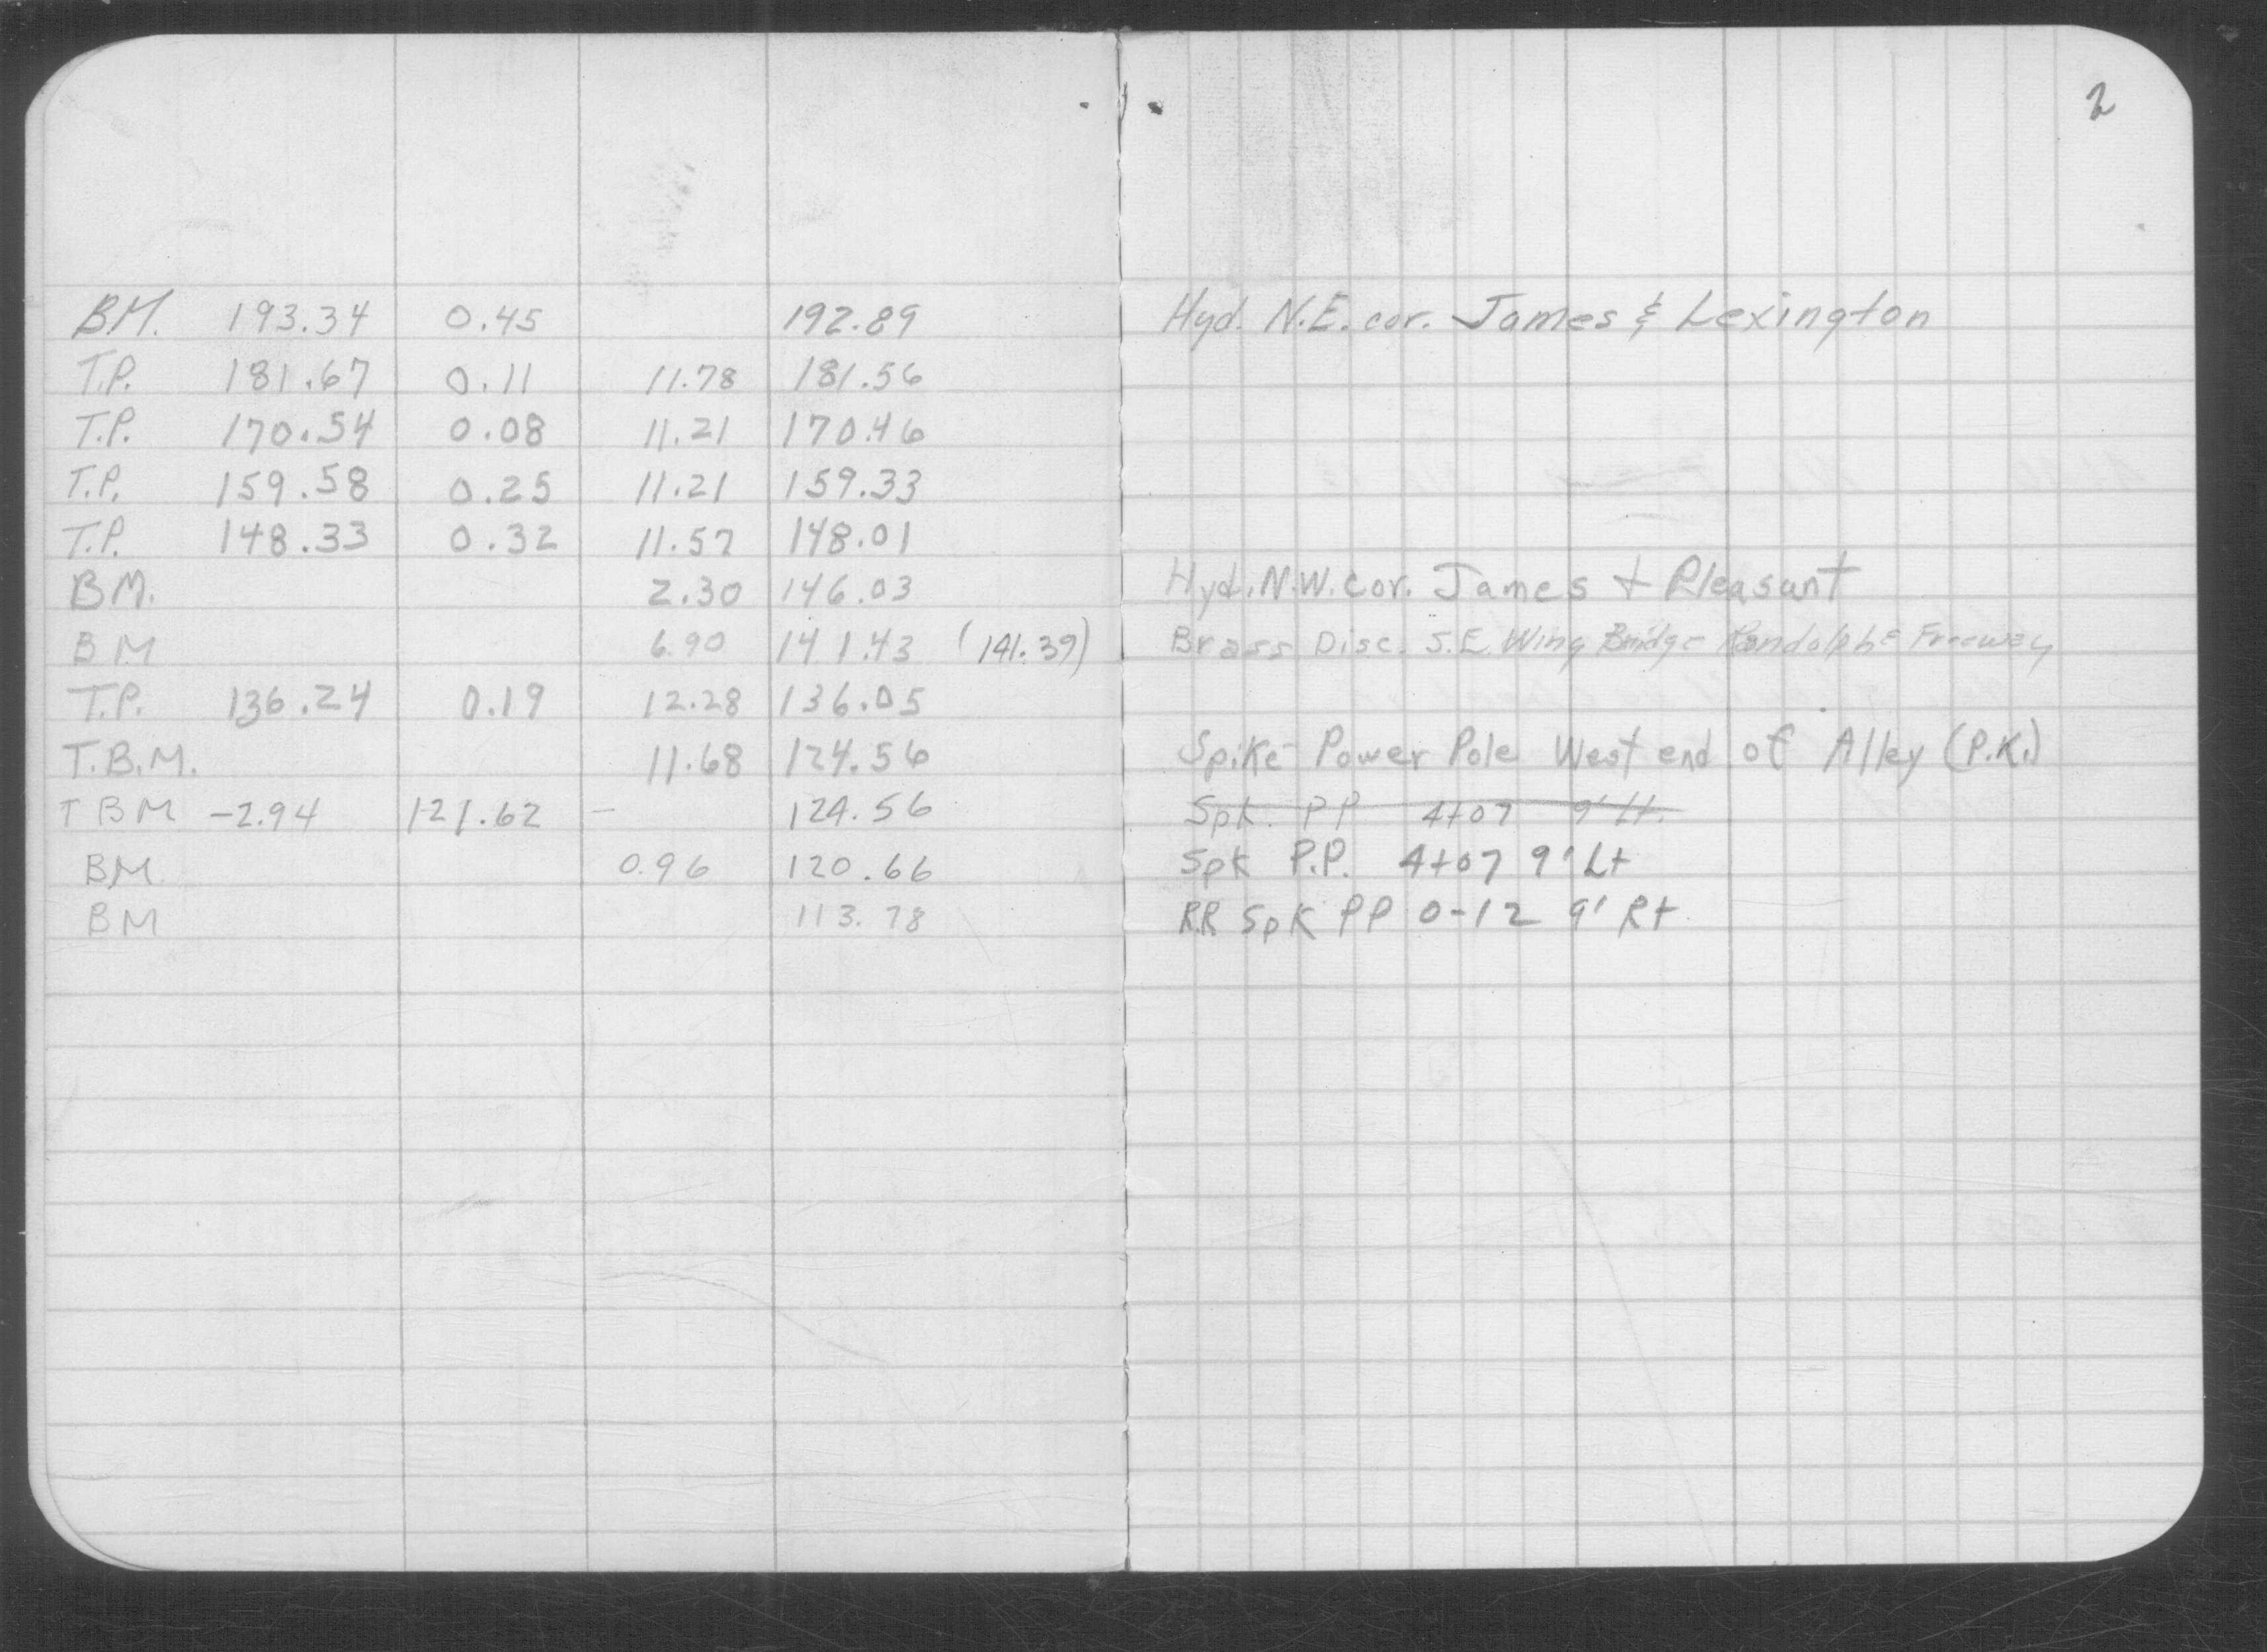 2
BM. 193.34 0.45 192.89 Hyd. N.E. cor. James & Lexington
T.P. 181.67 0.11 11.78 181.56
T.P. 170.54 0.08 11.21 170.46
T.P. 159.58 0.25 11.21 159.33
T.P. 148.33 0.32 11.57 148.01
BM. 2.30 146.03 Hyd. N.W. cor. James + Pleasant
BM 6.90 141.43 (141.39) Brass Disc. S.E. Wing Bridge Randolph & Freeway
T.P. 136.24 0.19 12.28 136.05
T.B.M. 11.68 124.56 Spike - Power Pole West end of Alley (P.K.)
TBM -2.94 121.62 - 124.56 Spk. PP 4+07 9' Lt.
BM 0.96 120.66 Spk P.P. 4+07 9' Lt
BM 113.78 RR Spk PP 0-12 9' Rt